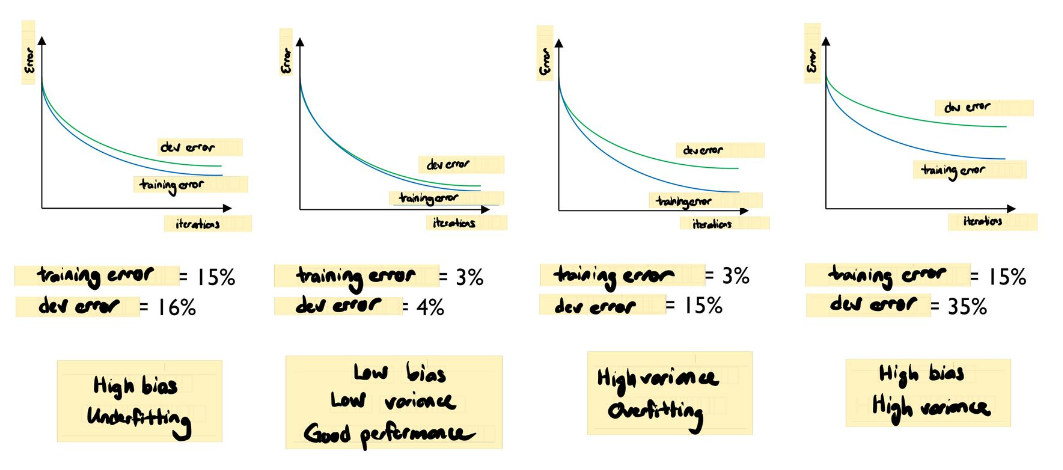 Error
dev error
training error
iterations
training error = 15%
dev error = 16%
High bias
Underfitting
Error
dev error
training error
iterations
training error = 3%
dev error = 4%
Low bias
Low variance
Good performance
Error
dev error
training error
iterations
training error = 3%
dev error = 15%
High variance
Overfitting
Error
dev error
training error
iterations
training error = 15%
dev error = 35%
High bias
High variance